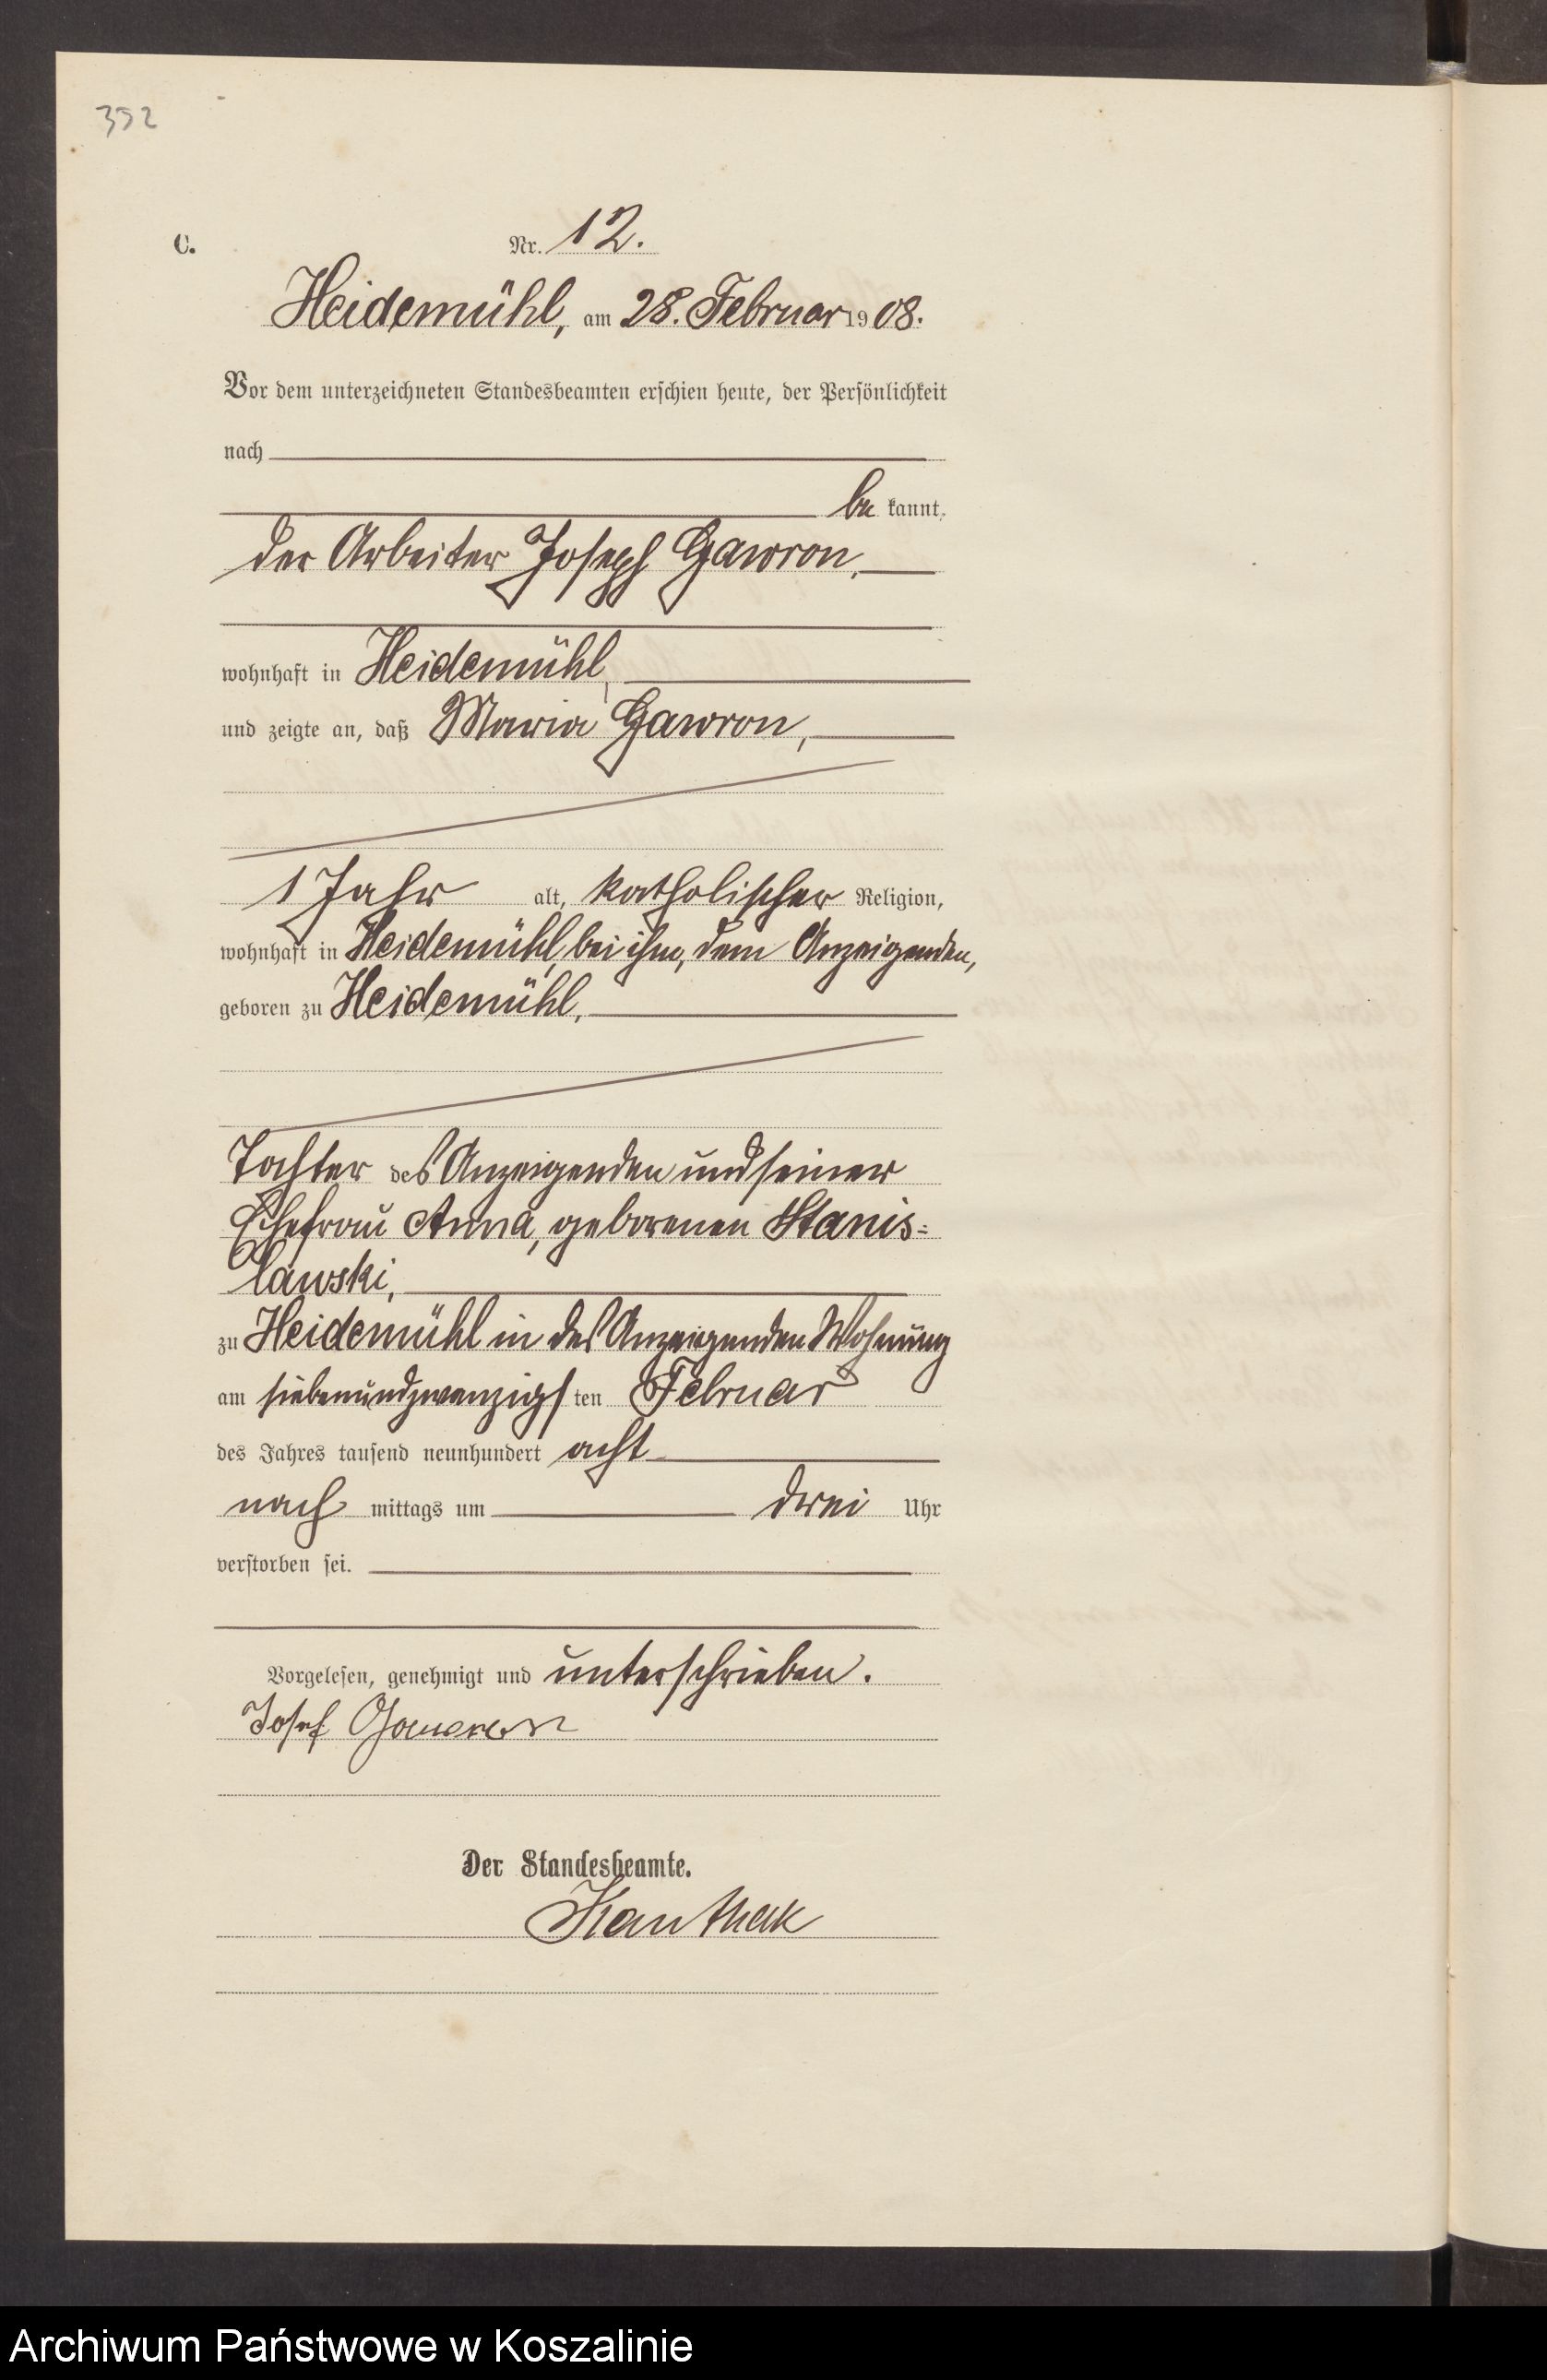 352
C.
Nr. 12.
Heidemühl, am 28. Februar 1908.
Vor dem unterzeichneten Standesbeamten erschien heute, der Persönlichkeit
nach
be kannt,
der Arbeiter Joseph Gawron,
wohnhaft in Heidemühl,
und zeigte an, daß Maria Gawron,
1 Jahr alt, katholischer Religion,
wohnhaft in Heidemühl, bei ihm, dem Anzeigenden,
geboren zu Heidemühl,
Tochter des Anzeigenden und seiner
Ehefrau Anna, geborenen Stanis=
lawski,
zu Heidemühl in des Anzeigenden Wohnung
am siebenundzwanzigsten Februar
des Jahres tausend neunhundert acht
nach mittags um drei Uhr
verstorben sei.
Vorgelesen, genehmigt und unterschrieben.
Josef Gawron
Der Standesbeamte.
Archiwum Państwowe w Koszalinie